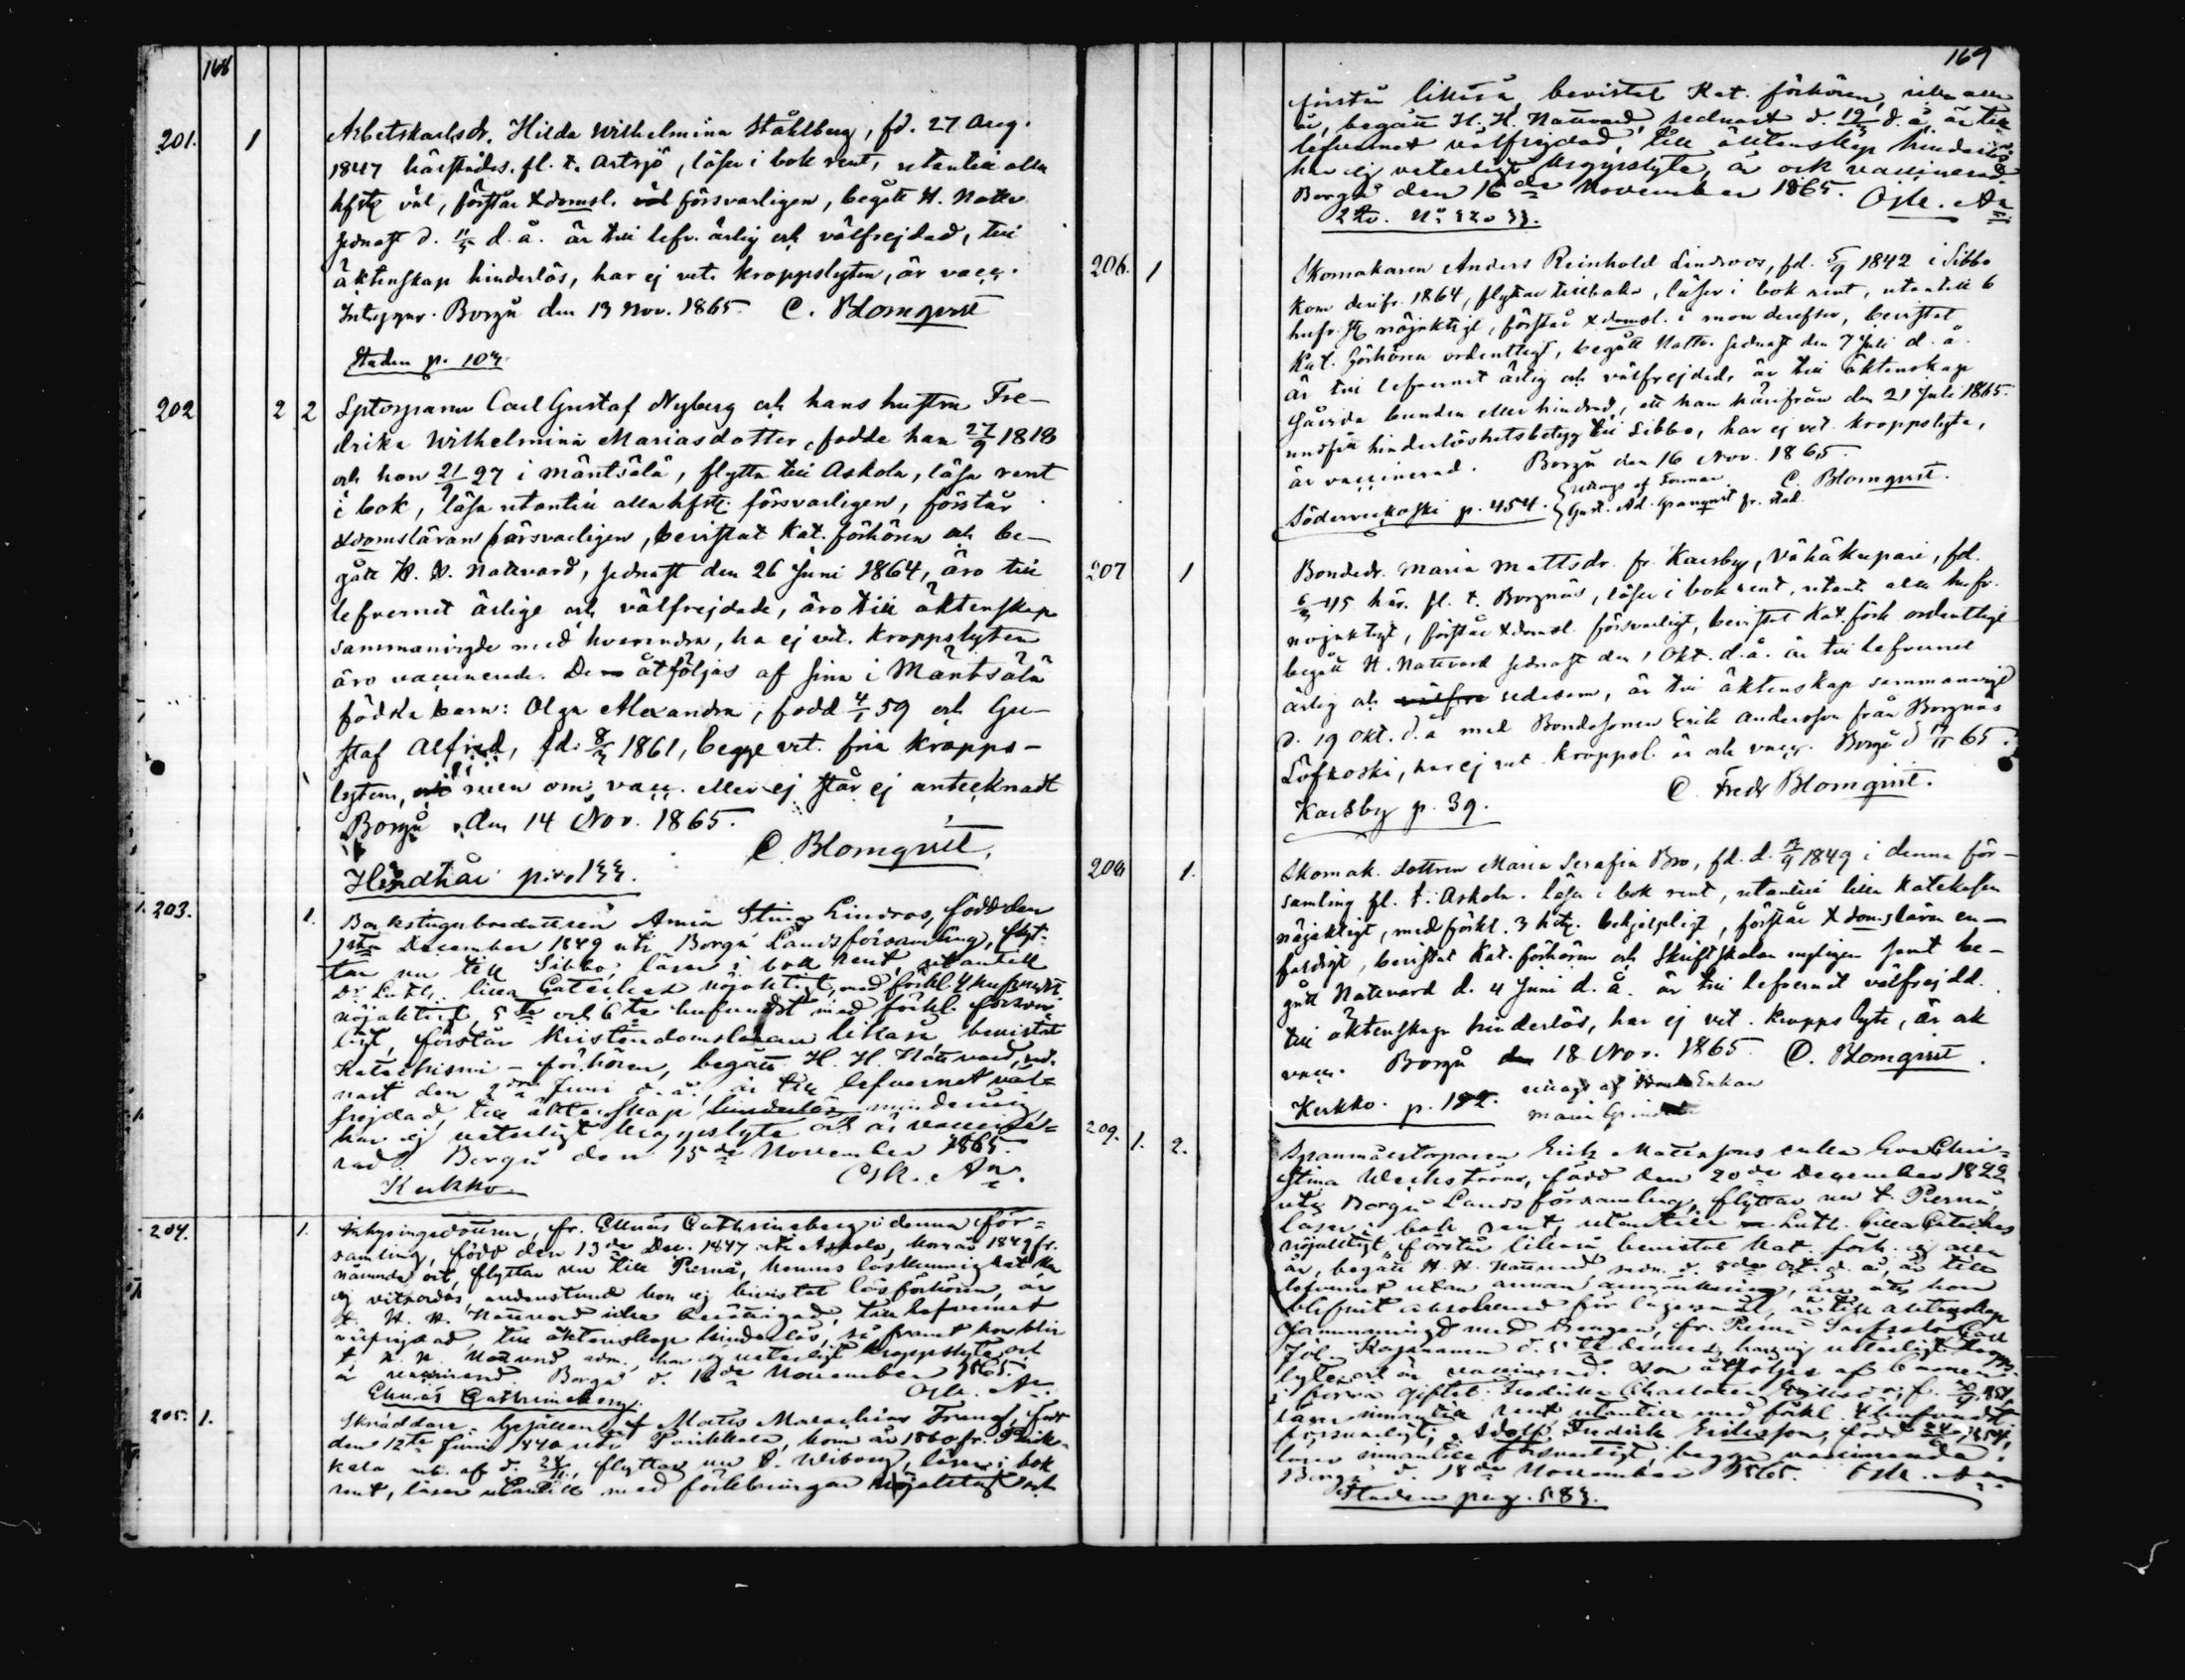 168
201. 1 Arbetskarlsdr. Hilda Wilhelmina Ståhlberg, fd. 27 Aug.
1847 härstädes. fl. t. Artsjö, läser i bok rent, utantill alla
hfstÿ väl, förstår Xdomsl. försvarligen, begått H. Nattv
sednast d. 11/5 d. å. är till lefv. ärlig och välfrejdad, till
äktenskap hinderlös, har ej vet. kroppslyten, är vacc.
Borgå den 13 Nov. 1865. C. Blomqvist
Staden p. 104
202 2 2 Sptorparen Carl Gustaf Nyberg och hans hustru Fre-
drika Wilhelmina Mariasdotter, fodde han 27/9 1818
och hon 21/9 27 i Mäntsälä, flytta till Askola, läsa rent
i bok, läsa utantill alla hfstÿ försvarligen, förstår
Xdomsläran försvarligen, bevistat Kat. förhören och be-
gått H. H. Nattvard, sednast den 26 Juni 1864, äro till
lefvernet ärlige och välfrejdade, äro till äktenskap
sammanvigde med hvarandra, ha ej vet. kroppslyten
äro vaccinerade. De åtföljas af sina i Mäntsälä
födda barn: Olga Alexandra, född 4/1 59 och Gu-
staf Alfred, fd. 8/5 1861, begge vet. fria kropps-
lyten, men om vacc. eller ej står ej antecknadt
Borgå den 14 Nov. 1865.
C. Blomqvist.
203. 1. Backstugubrodottren Anna Stina Lindros, född den
1sta December 1849 uti Borgå Landsförsamling, flyt-
tar nu till Sibbo, läser i bok rent utantill
Dr. Luth. lilla Cateches nöjaktigt, med förkl. 4 hufvudst.
nöjaktigt, 5te och 6te hufvudst med förkl. försvar-
ligt, förstår Kristendomsläran likaså, bevistat
Katechismi-förhören, begått H. H. Nattvard, sed-
nast den Juni d. å., är till lefvernet väl-
frejdad, till äktenskap hinderlös minderårig,
har ej veterligt kroppslyte och är vaccine-
rad. Borgå den 15de November 1865.
Kerkko
204. 1. Inhysingedottren, fr. Elluäs Cathrineberg i denna för-
samling, född den 13de Dec. 1847 uti Askola, kom år 1849 fr.
nämnda ort, flyttar nu till Pernå, hennes läskunnighet kan
ej vitsordas, endenstund hon ej bevistat läsförhören, är
t. H. H. Nattvard icke berättigad, till lefvernet
välfrejdad, till äktenskap hinderlös, så framt hon blir
t. H. H. Nattvard adm., har ej veterligt kroppslyte och
är vaccinerad. Borgå d. 16de November 1865.
205. 1. Skräddare Gesällen Matts Malachias Franzs, född
den 12te Juni 1840 uti Puikkala, kom år 1860 fr.
flyttar nu t. Wiborg, läser i bok
rent, läser utantill med förklaringar nöjaktigt och
169
förstår likaså, bevistat Kat. förhören, icke alla
år, begått H. H. Nattvard, sednast d. 19/3 d. å. är till
lefvernet välfrejdad, till äktenskap hinderlös,
har ej veterligt kroppslyte, är ock vaccinerad
Borgå den 16de November 1865.
206. 1 Skomakaren Anders Reinhold Lindroos, fd. 5/9 1842 i Sibbo
kom derifr. 1864, flyttar tillbaka, läser i bok rent, utantill 6
hufv. st nöjaktigt, förstår Xdomsl. i mon derefter, bevistat
Kat. förhören ordentligt, begått Nattv. sednast den 7 Juli d. å.
är till lefvernet ärlig och välfrejdad, är till äktenskap
såvida bunden eller hindrad, att han härifrån den 21 Juli 1865.
undfått hinderlöshetsbetyg till Sibbo, har ej vet. kroppslyte,
är vaccinerad. Borgå den 16 Nov. 1865.
C. Blomqvist.
Söderveckoski p. 454.
207 1 Bondedr. Maria Mattsdr. fr. Karsby, Vähäkupari, fd.
6/3 45 här. fl. t. Borgnäs, läser i bok rent, utant. alla hufv.
nöjaktigt, förstår Xdomsl. försvarligt, bevistat Kat. förh ordentligt
begått H. Nattvard sednast den 1 Okt. d. å. är till lefvernet
ärlig och sedesam, är till äktenskap sammanvigd
d. 19 Okt. d. å med Bondesonen Erik Andersson från Borgnäs
Löfkoski, har ej vet kroppsl. är och vacc. Borgå d 17/11 65.
C. Fredr Blomqvist.
Karsby p. 39.
208 1. Skomak. dottren Maria Serafia Bro, fd. d. 17/9 1849 i denna för-
samling fl. t. Askola. läser i bok rent, utantill lilla Katekesen
nöjaktigt, med förkl. 3 hstÿ. behjelpligt, förstår Xdomsläran en-
faldigt, bevistat Kat. förhören och Skriftskolan nyligen samt be-
gått Nattvard d. 4 Juni d. å. är till lefvernet välfrejdd.
till äktenskap hinderlös, har ej vet. kroppslyte, är ock
vacc. Borgå 18 Nov. 1865. C. Blomqvist
Kerkko. p. 192.
209. 1. 2. Erik Matinsons enka Eva Chri-
stina Weckström, född den 20de December 1822
uti Borgå Landsförsamling, flyttar nu t. Pernå,
läser i bok rent, utantill Luth. lilla Cateches
nöjaktigt, förstår likaså, bevistat Kat. förh. ej alla
år, begått H. H. Nattvard sedn. d. 8de Okt. d. å., är till
lefvernet utan annan anmärkning, än att hon
blifvit absolverad för lägersmål, är till äktenskap
sammanvigd med Drengen, fr. Pernå
är vaccinerad. Hon åtföljes af barnen
i förra giftet: Fredrika Charlotta
läser innantill rent utantill med förkl. 4 hufvudst.
försvarligt; Adolf Fredrik Eriksson, född
läser innantill försvarligt, begge vaccinerade.
Borgå d. 18de November 1865.
Staden pag. 583.